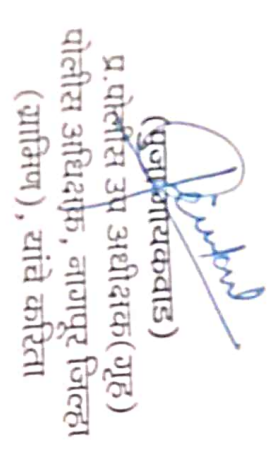 (पुजा गायकवाड)
प्र.पोलीस उप अधीक्षक(गृह)
पोलीस अधिक्षक, नागपूर जिल्हा
(ग्रामिण), यांचे करिता